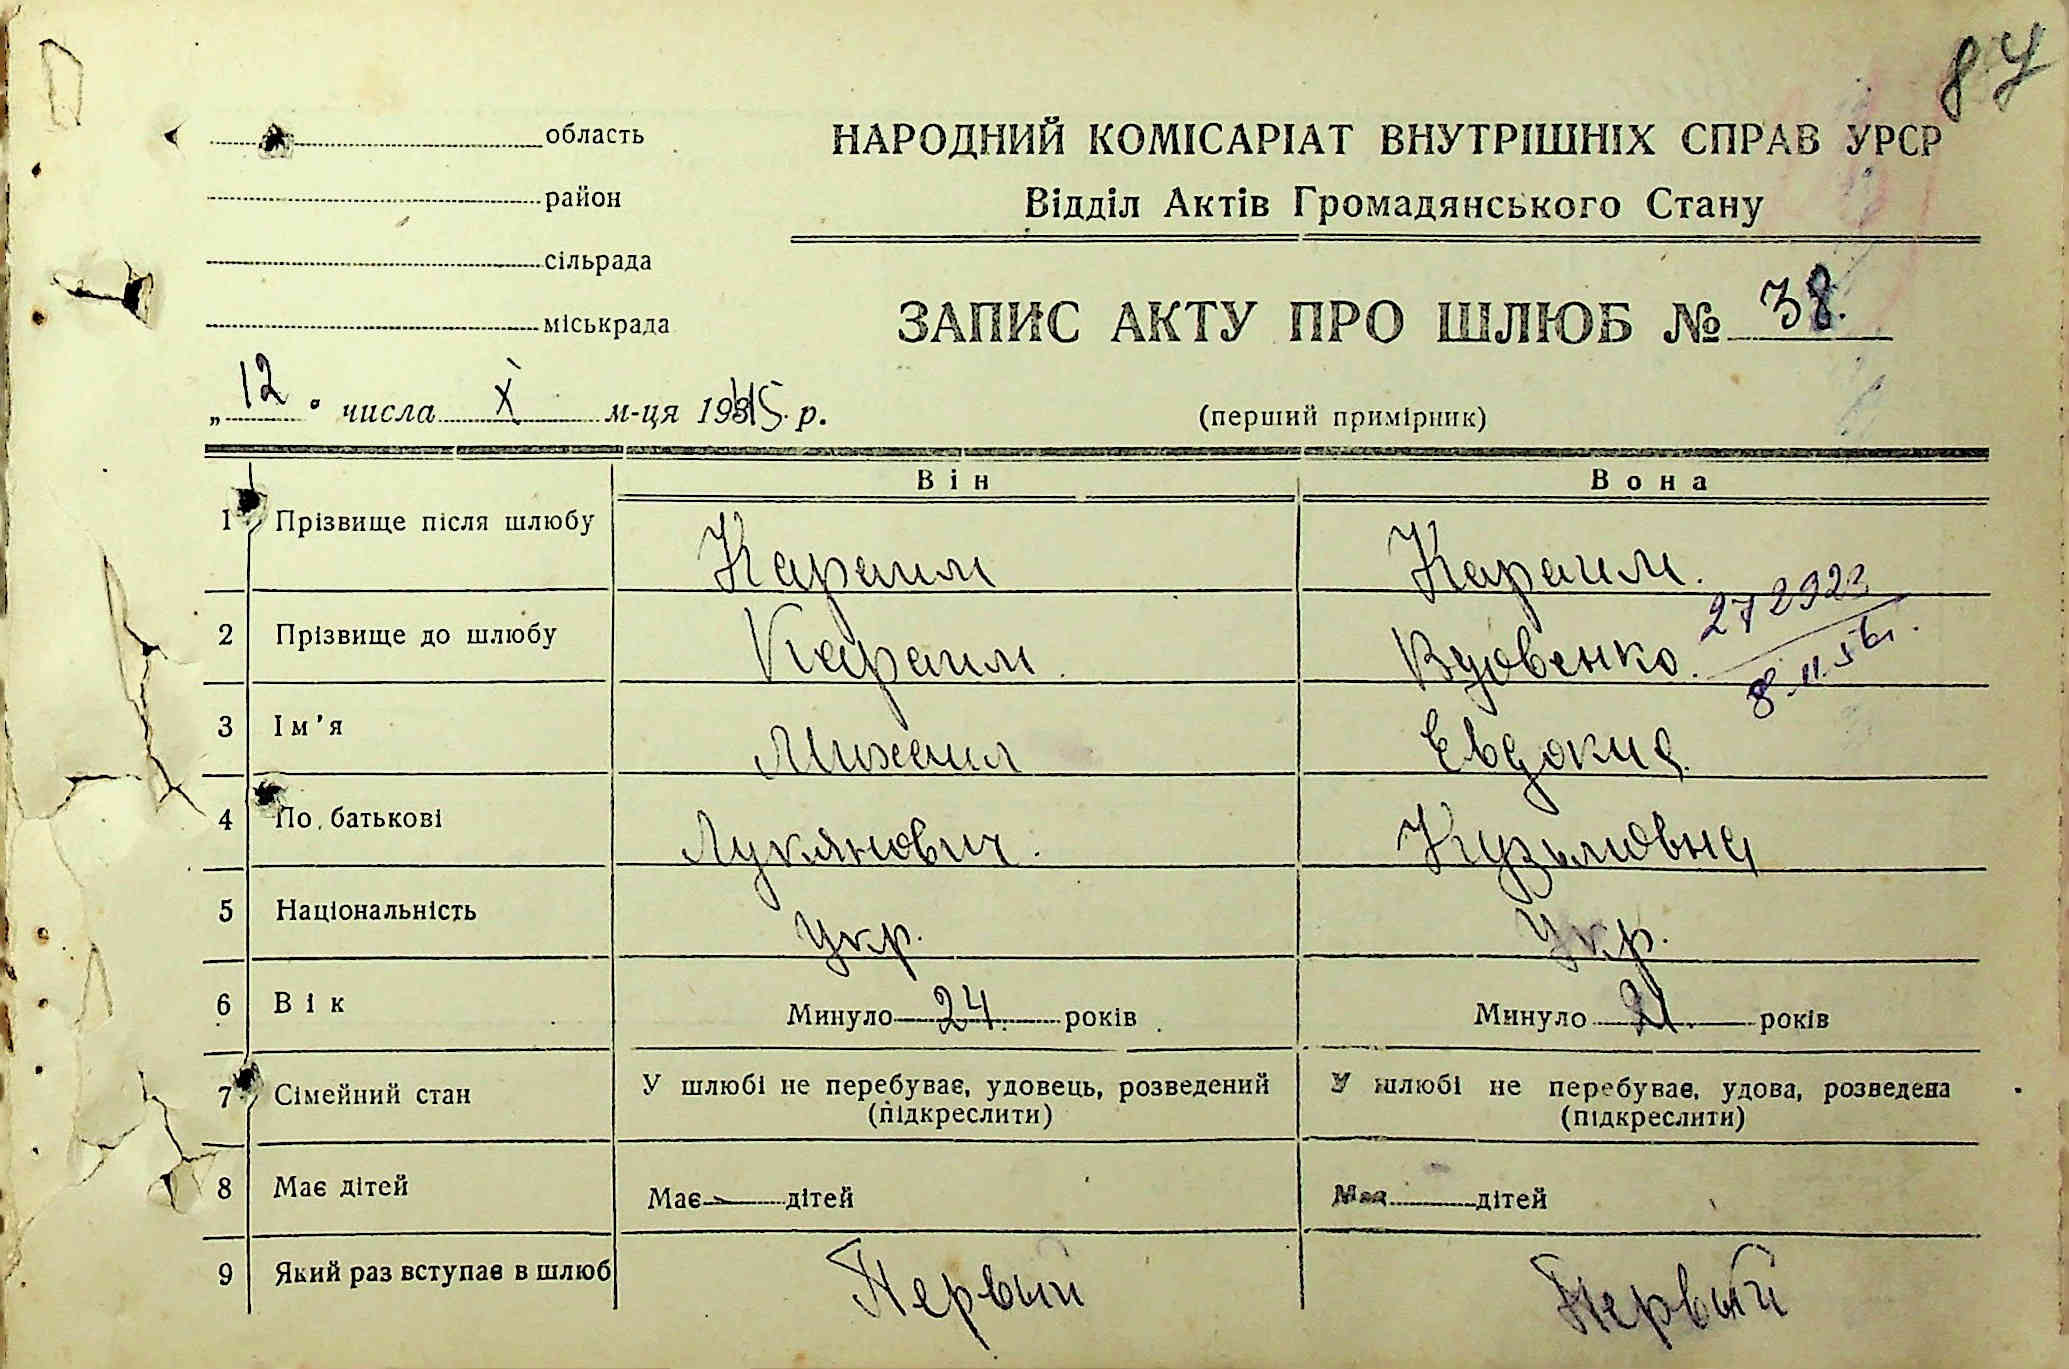 87
область
район
сільрада
міськрада
НАРОДНИЙ КОМІСАРІАТ ВНУТРІШНІХ СПРАВ УРСР
Відділ Актів Громадянського Стану
ЗАПИС АКТУ ПРО ШЛЮБ № 38.
„ 12 " числа X м-ця 1945 р.
(перший примірник)
Він Вона
1 Прізвище після шлюбу Караим Караим.
2 Прізвище до шлюбу Караим Вдовенко.
272923
8.11.56г.
3 Ім'я Михаил Евдокия
4 По батькові Лукянович. Кузьмовна
5 Національність Укр. Укр.
6 Вік Минуло 24. років Минуло 21. років
7 Сімейний стан У шлюбі не перебуває, удовець, розведений У шлюбі не перебуває, удова, розведена
(підкреслити) (підкреслити)
8 Має дітей Має — дітей Має дітей
9 Який раз вступає в шлюб Первый Первый